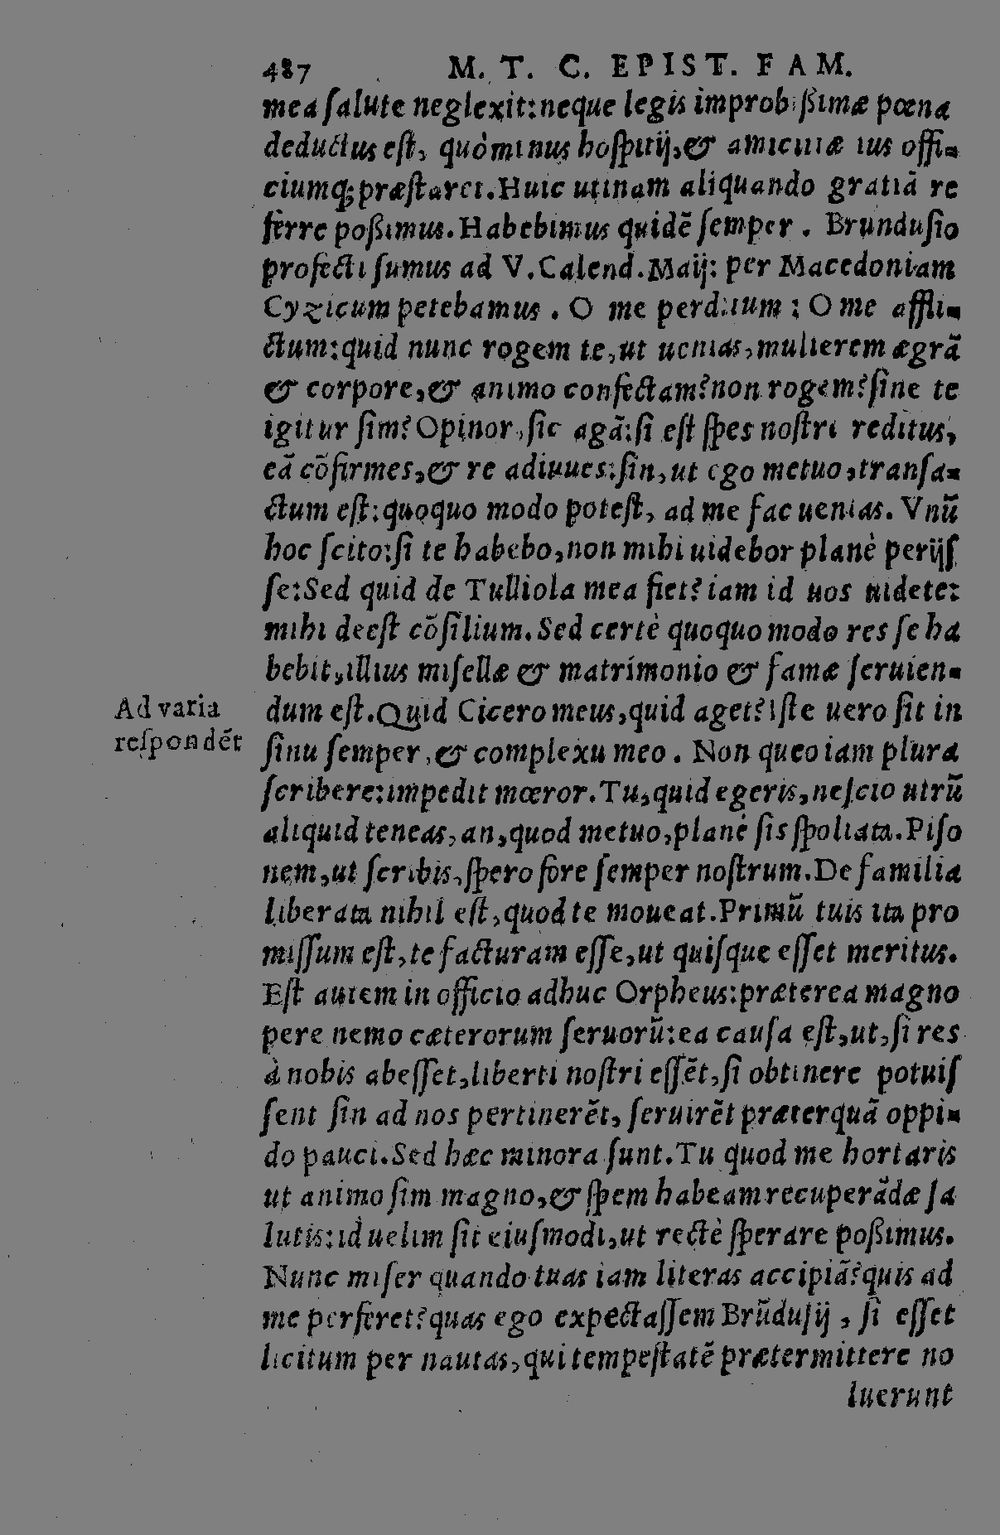 487 M. T. C. EPIST. FAM.
mea ſalute neglexit:neque legis improbißimæ pœna
deductus eſt, quòminus hoſpitij,& amicitiæ ius offi-
ciumq; præſtaret.Huic utinam aliquando gratiā re
ferre poßimus.Habebimus quidē ſemper. Brunduſio
profecti ſumus ad V.Calend.Maij: per Macedoniam
Cyzicum petebamus. O me perditum: O me affli-
ctum:quid nunc rogem te,ut uenias,mulierem ægrā
& corpore,& animo confectam?non rogem?ſine te
igitur ſim?Opinor,ſic agā:ſi eſt ſpes noſtri reditus,
eā cōfirmes,& re adiuues:ſin,ut ego metuo,tranſa-
ctum eſt:quoquo modo poteſt, ad me fac uenias. Vnū
hoc ſcito:ſi te habebo,non mihi uidebor planè perijſ
ſe:Sed quid de Tulliola mea fiet?iam id uos uidete:
mihi deeſt cōſilium.Sed certè quoquo modo res ſe ha
bebit,illius miſellæ & matrimonio & famæ ſeruien-
dum eſt.Quid Cicero meus,quid aget?iſte uero ſit in
Ad varia
reſpondēt
ſinu ſemper,& complexu meo. Non queo iam plura
ſcribere:impedit mœror.Tu,quid egeris,neſcio utrū
aliquid teneas,an,quod metuo,planè ſis ſpoliata.Piſo
nem,ut ſcribis,ſpero fore ſemper noſtrum.De familia
liberata nihil eſt,quod te moueat.Primū tuis ita pro
miſſum eſt,te facturam eſſe,ut quiſque eſſet meritus.
Eſt autem in officio adhuc Orpheus:præterea magno
pere nemo cæterorum ſeruorū:ea cauſa eſt,ut,ſi res
à nobis abeſſet,liberti noſtri eſſēt,ſi obtinere potuiſ
ſent ſin ad nos pertinerēt, ſeruirēt præterquā oppi-
do pauci.Sed hæc minora ſunt.Tu quod me hortaris
ut animo ſim magno,& ſpem habeam recuperādæ ſa
lutis:id uelim ſit eiuſmodi,ut rectè ſperare poßimus.
Nunc miſer quando tuas iam literas accipiā?quis ad
me perferet?quas ego expectaſſem Brūduſij, ſi eſſet
licitum per nautas,qui tempeſtatē prætermittere no
luerunt